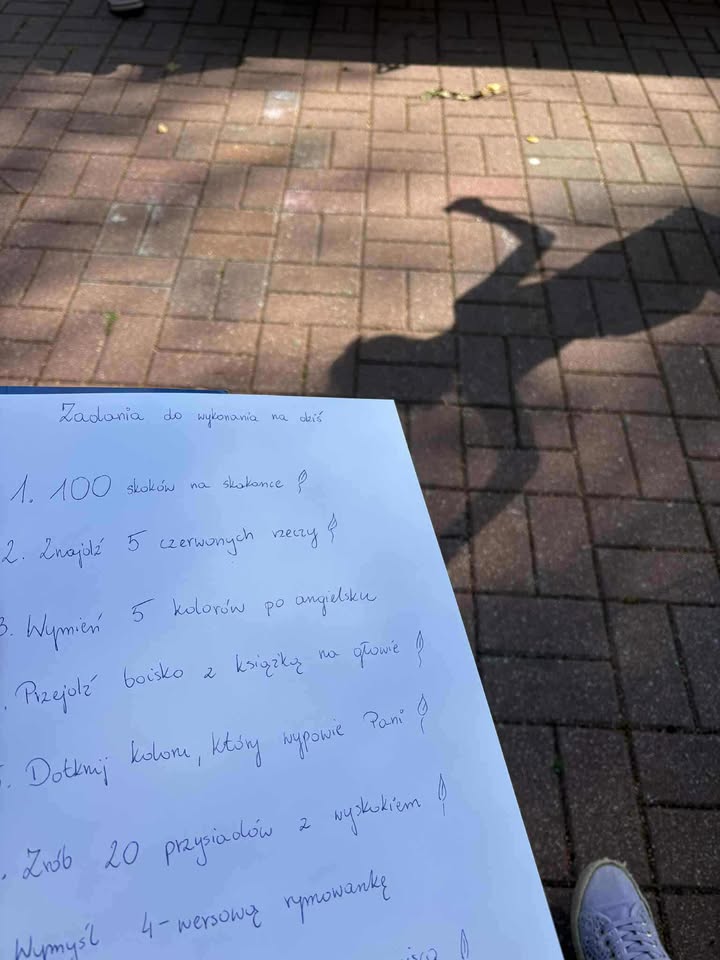 Zadania do wykonania na dziś
1. 100 skoków na skakance
2. Znajdź 5 czerwonych rzeczy
3. Wymień 5 kolorów po angielsku
. Przejdź boisko z książką na głowie
5. Dotknij koloru, który wypowie Pani
. Zrób 20 przysiadów z wyskokiem
Wymyśl 4-wersową rymowankę